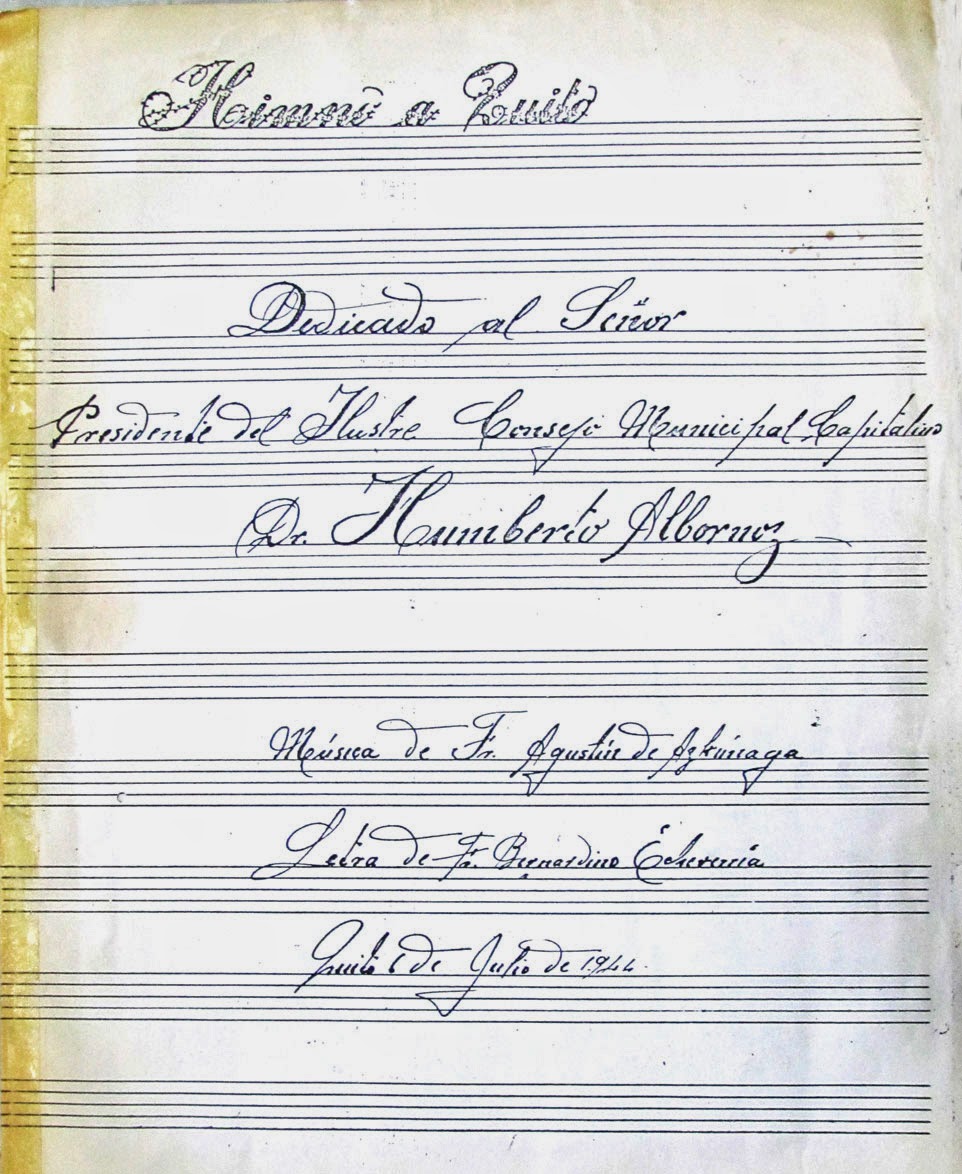 Himno a Quito
Dedicado al Señor
Presidente del Ilustre Consejo Municipal Capitalino
Dr. Humberto Albornoz
Música de Fr. Agustín de Azkúnaga
Letra de Fr. Bernardino Echeverría
Quito 6 de Julio de 1944.